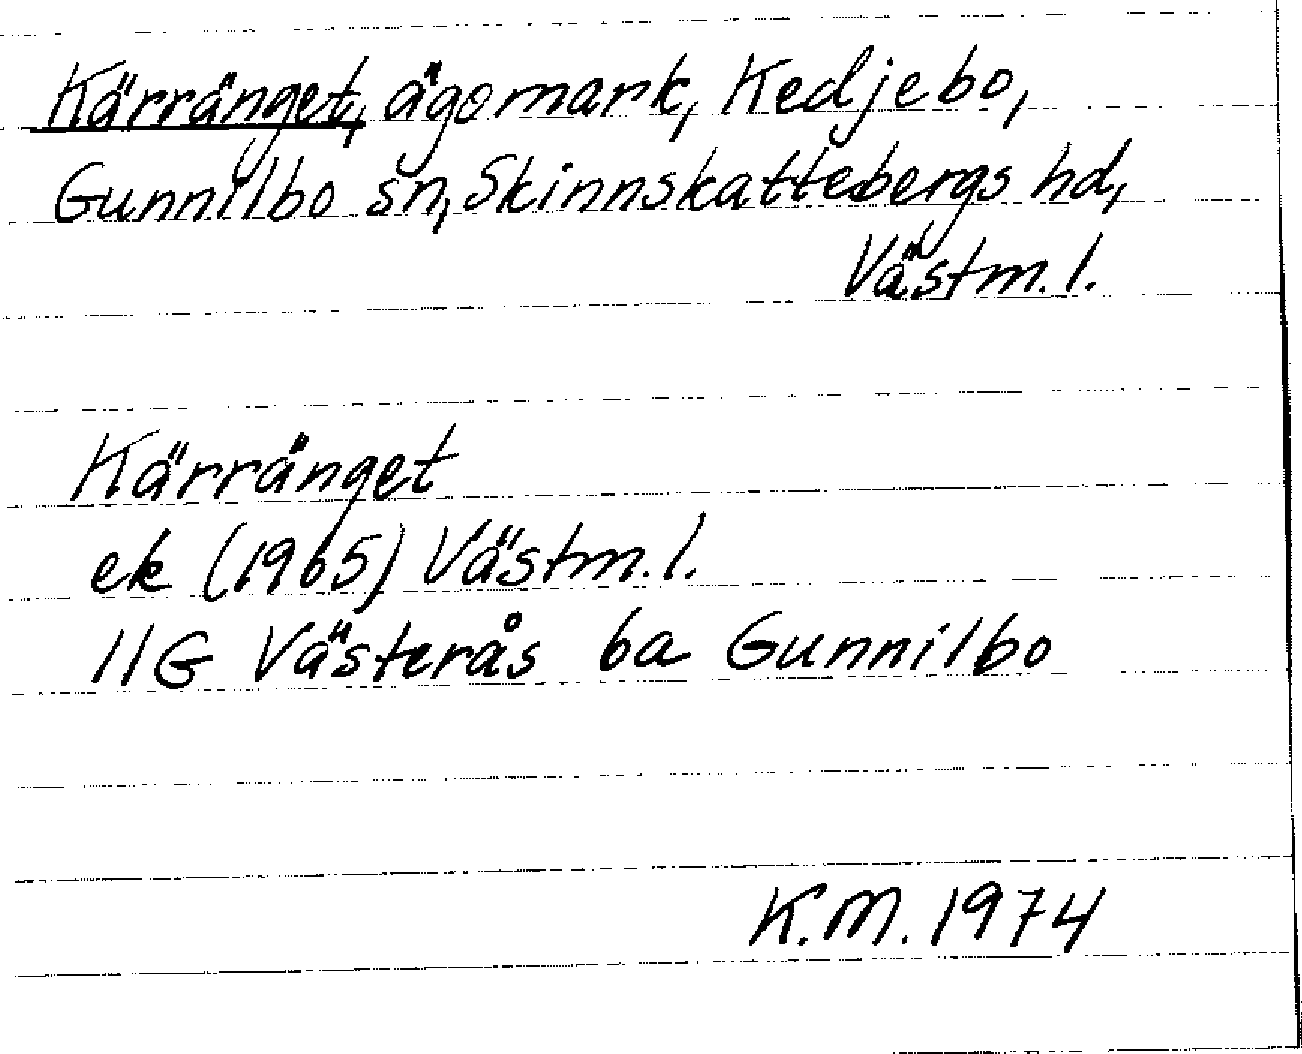 Kärränget, ägomark, Kedjebo,
Gunnilbo sn, Skinnskattebergs hd,
Västm. l.
Kärränget
ek (1965) Västm. l.
11G Västerås 6a Gunnilbo
K.M. 1974